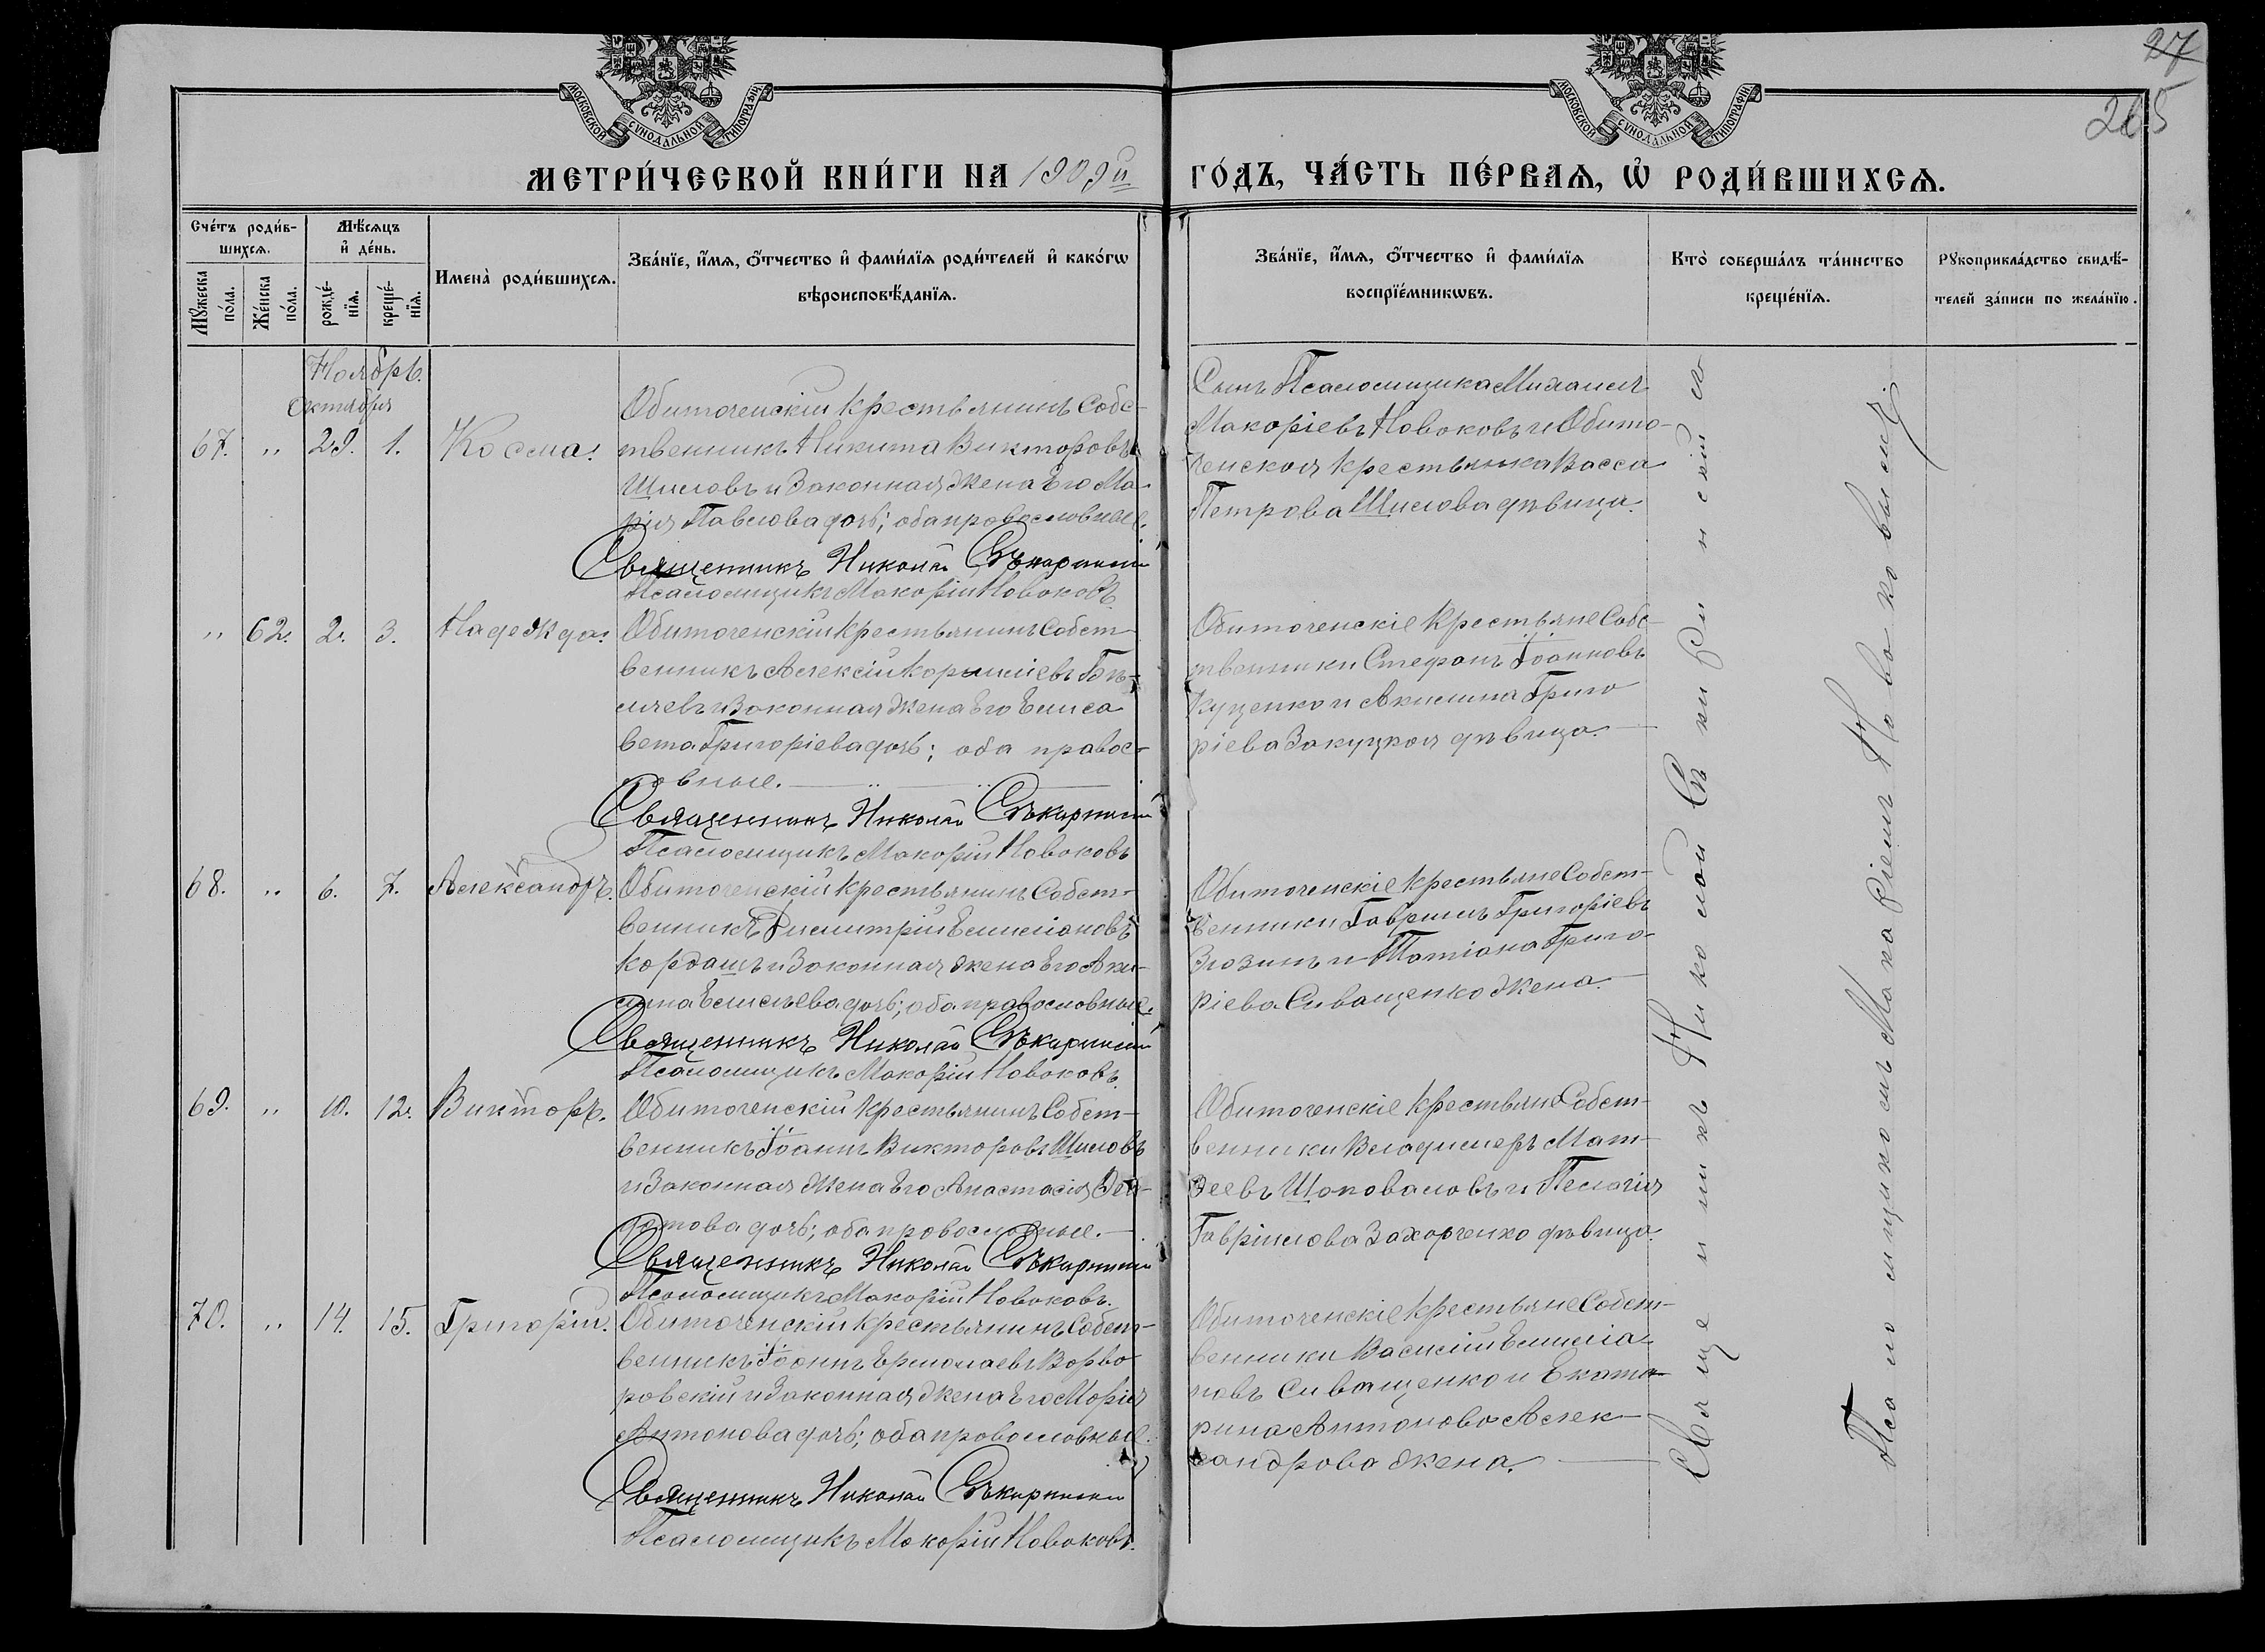 27
265
МОСКОВСКОЙ СѴНОДАЛЬНОЙ ТИПОГРАФІИ
МОСКОВСКОЙ СѴНОДАЛЬНОЙ ТИПОГРАФІИ
МЕТРИ́ЧЕСКОЙ КНИ́ГИ НА 1909й ГО́ДЪ, ЧА́СТЬ ПЕ́РВАѦ, Ѡ҆ РОДИ́ВШИХСѦ.
Сче́тъ роди́в-
шихсѧ.
Мꙋ́жеска по́ла.
Же́нска по́ла.
Мѣ́сѧцъ
и҆ де́нь.
рожде́-
нїѧ.
креще́-
нїѧ.
Имена̀ роди́вшихсѧ.
Зва́нїе, и҆́мѧ, ѻ҆́тчество и҆ фами́лїѧ роди́телей и҆ како́гѡ
вѣроисповѣ́данїѧ.
Зва́нїе, и҆́мѧ, ѻ҆́тчество и҆ фами́лїѧ
воспрїе́мникѡвъ.
Кто̀ соверша́лъ та́инство
креще́нїѧ.
Рꙋкоприкла́дство свидѣ́-
телей за́писи по жела́нїю.
Ноябрь.
Октября
67. " 29. 1. Косма.
Обиточенскій крестьянинъ Собс-
твенникъ Никита Викторовъ
Шиловъ и Законная жена Его Ма-
рія Павлова дочь; оба православные.
Священникъ Николай Сѣкиринскій
Псаломщикъ Макарій Новаковъ.
Сынъ Псаломщика Михаилъ
Макаріевъ Новаковъ и Обито-
ченская крестьянка Васса
Петрова Шилова дѣвица.
" 62. 2. 3. Надежда.
Обиточенскій крестьянинъ Собст-
венникъ Алексій Корниліевъ
и Законная жена Его Елиса
вета Григоріева дочь; оба правос-
лавные.
Священникъ Николай Сѣкиринскій
Псаломщикъ Макарій Новаковъ
Обиточенскіе крестьяне Собс-
твенники Стефанъ Іоанновъ
Куценко и Акилина Григо
ріева Закуцкая дѣвица.
68. " 6. 7. Александръ.
Обиточенскій крестьянинъ Собст-
венникъ Димитрій Емиліановъ
Кордашъ и Законная жена Его Аки-
лина дочь; оба православные.
Священникъ Николай Сѣкиринскій
Псаломщикъ Макарій Новаковъ.
Обиточенскіе крестьяне Собст-
венники Гавріилъ Григоріевъ
и Татіана Григо-
ріева Сиващенко жена.
69. " 10. 12. Викторъ.
Обиточенскій крестьянинъ Собст-
венникъ Іоаннъ Викторовъ Шиловъ
и Законная жена Его Анастасія Фео-
дотова дочь; оба православные.
Священникъ Николай Сѣкиринскій
Псаломщикъ Макарій Новаковъ.
Обиточенскіе крестьяне Собст-
венники Владимеръ Мат-
ѳеевъ Шаповаловъ и Пелагія
Гавріилова Захарченко дѣвица.
70. " 14. 15. Григорій.
Обиточенскій крестьянинъ Собст-
венникъ Іоаннъ Ермолаевъ Варва
ровскій и Законная жена Его Марія
Антонова дочь; оба православные.
Священникъ Николай Сѣкиринскій
Псаломщикъ Макарій Новаковъ.
Обиточенскіе крестьяне Собст-
венники Василій Емиліа-
новъ Сиващенко и Екате-
рина Антонова Алек-
сандрова жена.
Священникъ Николай Сѣкиринскій съ
Псаломщикомъ Макаріемъ Новаковымъ.